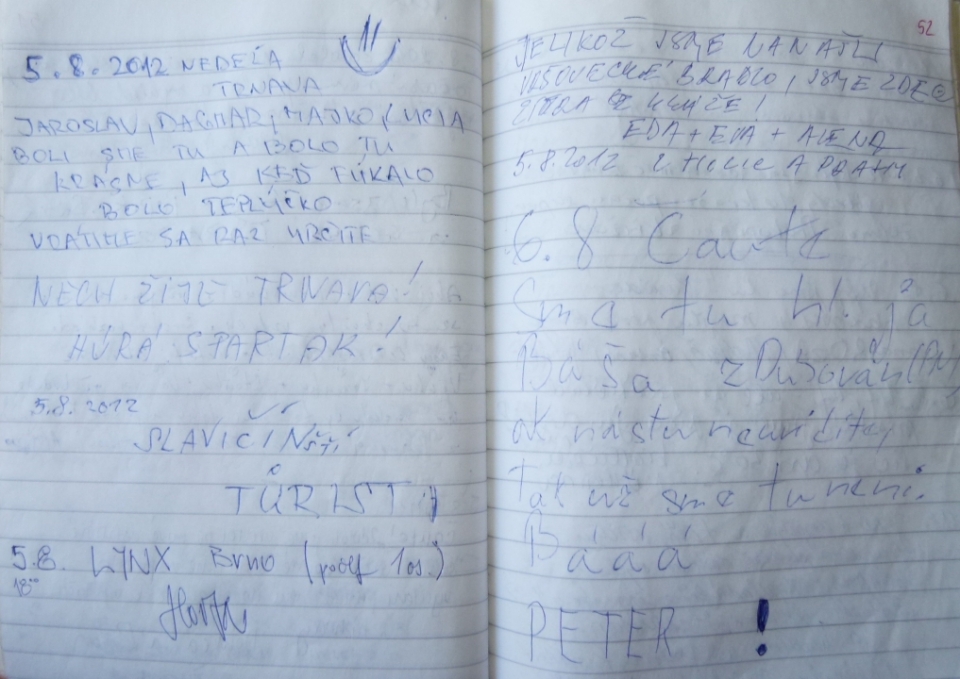 11
5.8.2012 NEDEĽA
TRNAVA
JAROSLAV, DAGMAR, MAJKO, LUCIA
BOLI SME TU A BOLO TU
KRÁSNE, AJ KEĎ FÚKALO
BOLO TEPLÚČKO
VRÁTIME SA RAZ URČITE
NECH ŽIJE TRNAVA!
HURÁ SPARTAK!
5.8.2012
SLAVIČÍNŠTÍ
TURISTI
5.8. LYNX Brno (poče 1 os.)
18⁰⁰
52
JELIKOŽ JSME NANAŠLI
VRŠOVECKÉ BRADLO, JSME ZDE
ZÍTRA SE KLUČE!
EDA + EVA + ALENA
5.8.2012 Z HOLIC A PRAHY
6.8 Čaute
Sme tu h! ja
Báša z Dubován
ak nás tu neuvidíte,
tak už sme tu neni.
Bááá
PETER !